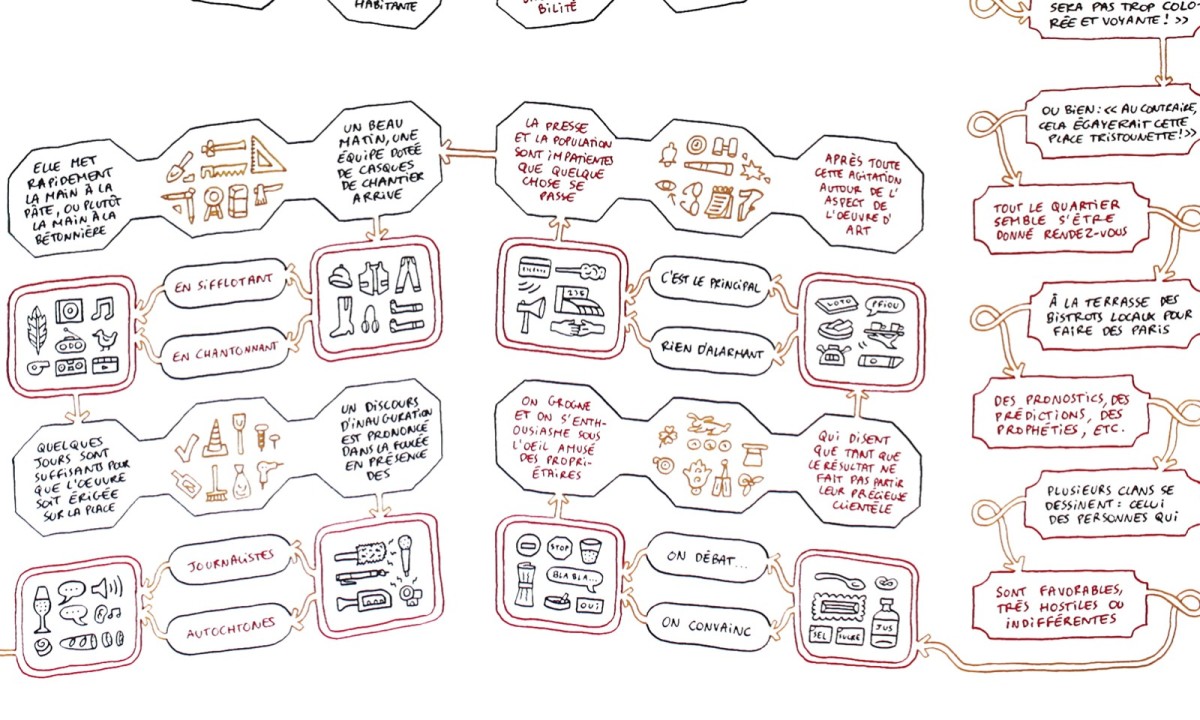 HABITANTE
BILITÉ
SERA PAS TROP COLO-
RÉE ET VOYANTE! >>
OU BIEN : << AU CONTRAIRE,
CELA ÉGAYERAIT CETTE
PLACE TRISTOUNETTE!>>
TOUT LE QUARTIER
SEMBLE S'ÊTRE
DONNÉ RENDEZ-VOUS
À LA TERRASSE DES
BISTROTS LOCAUX POUR
FAIRE DES PARIS
DES PRONOSTICS, DES
PRÉDICTIONS, DES
PROPHÉTIES, ETC.
PLUSIEURS CLANS SE
DESSINENT : CELUI
DES PERSONNES QUI
SONT FAVORABLES,
TRÈS HOSTILES OU
INDIFFÉRENTES
SEL
SUCRE
JUS
ON DÉBAT...
ON CONVAINC
STOP
BLA BLA...
OUI
ON GROGNE
ET ON S'ENTH-
OUSIASME SOUS
L'OEIL AMUSÉ
DES PROPRI-
ÉTAIRES
QUI DISENT
QUE TANT QUE
LE RÉSULTAT NE
FAIT PAS PARTIR
LEUR PRÉCIEUSE
CLIENTÈLE
LOTO
PFIOU
C'EST LE PRINCIPAL
RIEN D'ALARMANT
APRÈS TOUTE
CETTE AGITATION
AUTOUR DE L'
ASPECT DE
L'OEUVRE D'
ART
LA PRESSE
ET LA POPULATION
SONT IMPATIENTES
QUE QUELQUE
CHOSE SE
PASSE
UN BEAU
MATIN, UNE
ÉQUIPE DOTÉE
DE CASQUES
DE CHANTIER
ARRIVE
ELLE MET
RAPIDEMENT
LA MAIN À LA
PÂTE, OU PLUTÔT
LA MAIN À LA
BÉTONNIÈRE
EN SIFFLOTANT
EN CHANTONNANT
QUELQUES
JOURS SONT
SUFFISANTS POUR
QUE L'OEUVRE
SOIT ÉRIGÉE
SUR LA PLACE
UN DISCOURS
D'INAUGURATION
EST PRONONCÉ
DANS LA FOULÉE
EN PRÉSENCE
DES
JOURNALISTES
AUTOCHTONES